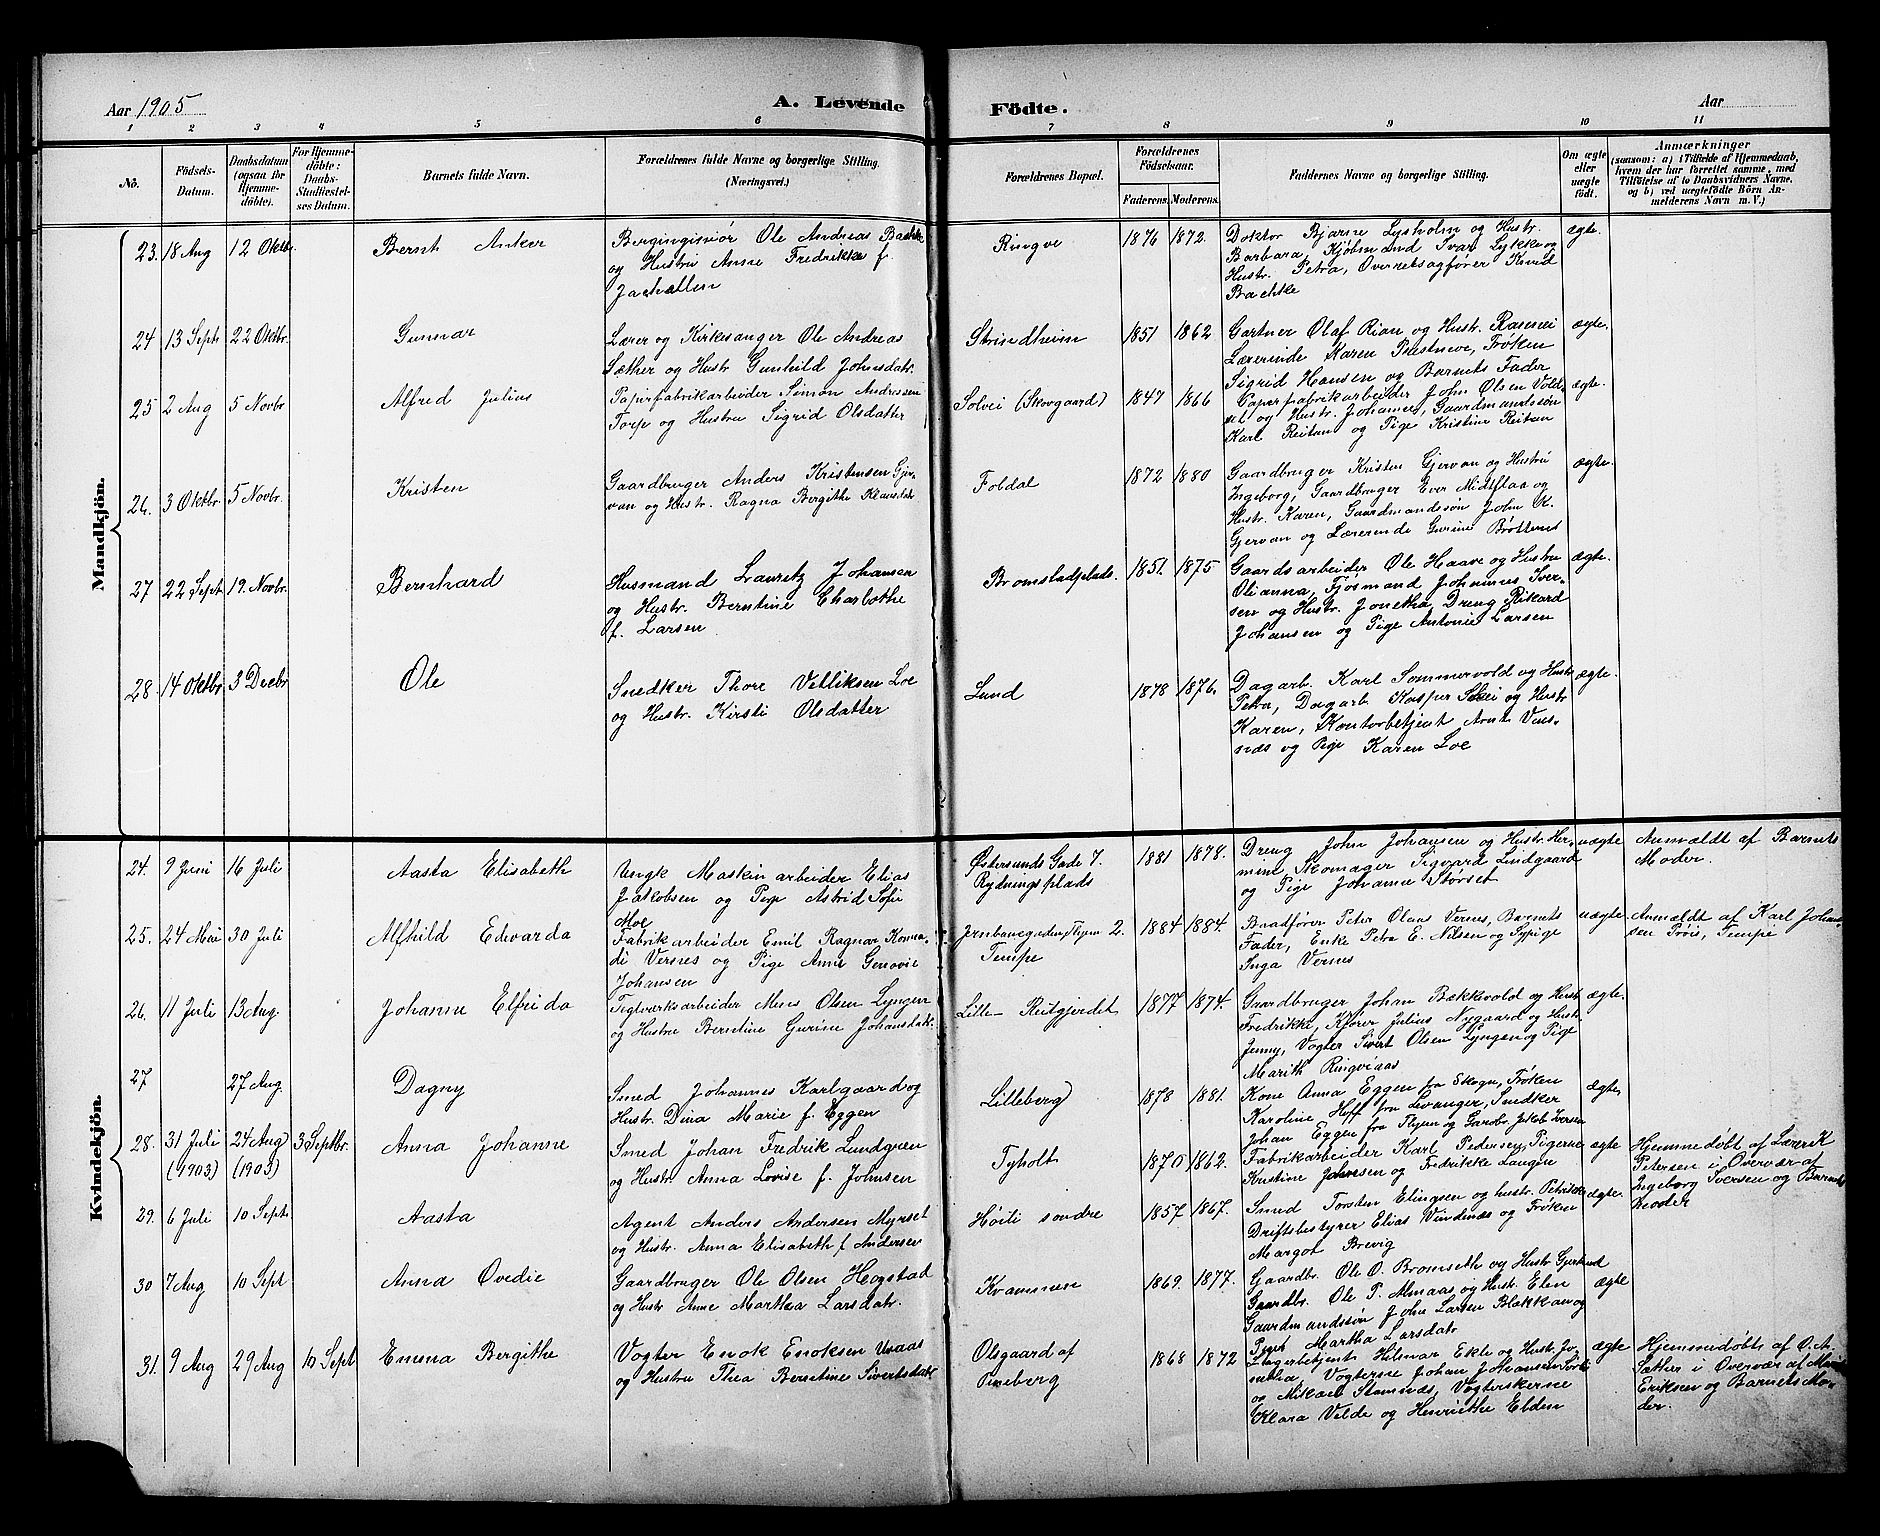 Aar 1905
A. Levende
Födte.
Aar
1 2 3 4 5 6 7 8 9 10 11
No.
Födsels-
Datum.
Daabsdatum
(ogsaa for
Hjemme-
döbte).
For Hjemme-
döbte:
Daabs-
Stadfæstel-
ses Datum.
Barnets fulde Navn.
Forældrenes fulde Navne og borgerlige Stilling.
(Næringsvei.)
Forældrenes Bopæl.
Forældrenes
Födselsaar.
Faderens. Moderens.
Faddernes Navne og borgerlige Stilling.
Om ægte
eller
uægte
födt.
Anmærkninger
(saasom: a) i Tilfælde af Hjemmedaab,
hvem der har forrettet samme, med
Tilföielse af to Daabsvidners Navne.
og b) ved uægtefödte Börn An-
melderens Navn m. V.)
Mandkjön.
23. 18 Aug 12 Oktbr. Bernt Anker
Bergingeniør Ole Andreas Bachke
og Hustru Anne Fredrikke f.
Jachwellen
Ringve 1876 1872.
Doktor Bjarne Lysholm og Hustr.
Barbara, Kjøbmand Ivar Lykke og
Hustr. Petra, Overretssagfører Knud
Bachke
ægte.
24 13 Sept 22 Oktbr. Gunnar
Lærer og Kirkesanger Ole Andreas
Sæther og Hustr Gunhild Johnsdatr.
Strindheim 1851 1862
Gartner Olaf Rian og Hustr.
Lærerinde Karen Prestmoe, Frøken
Sigrid Hansen og Barnets Fader
ægte.
25 2 Aug 5 Novbr Alfred Julius
Papirfabrikarbeider Simon Andressen
Torp og Hustru Sigrid Olsdatter
Solvei (Skovgaard) 1847 1866
Papirfabrikarbeider John Olsen Vold-
set og Hustr. Johanna, Gaardmandssøn
Karl Reitan og Pige Kristine Reitan
ægte.
26. 3 Oktbr. 5 Novbr. Kristen
Gaardbruger Anders Kristensen Gjer-
van og Hustr. Ragna Bergithe Klausdatr
Foldal 1872 1880
Gaardbruger Kristen Gjervan og Hustru
Ingeborg, Gaardbruger Ever Midtflaa og
Hustr. Karen, Gaardmandssøn John K.
Gjervan og Lærerinde Gurine Brøttem
ægte.
27 22 Sept 19. Novbr. Bernhard
Husmand Lauritz Johansen
og Hustr. Berntine Charlotthe
f. Larsen
Bromstadplads. 1851. 1875
Gaardsarbeider Ole Haave og Hustru
Olianna, Fjøsmand Johannes Iver-
sen og Hustr. Jonetha, Dreng Rikard
Johansen og Pige Antonie Larsen
ægte.
28. 14 Oktbr 3 Decbr Ole
Snedker Thore Velliksen Loe
og Hustr. Kirsti Olsdatter
Lund 1878 1876.
Dagarb. Karl Sommervold og Hustr
Petra, Dagarb. Kasper Skei og Hustr
Karen, Kontorbetjent Arnt Vens-
næs og Pige Karen Loe
ægte.
Kvindekjön.
24. 9 Juni 16 Juli Aasta Elisabeth
Ungk Maskinarbeider Elias
Jakobsen og Pige Astrid Sofie
Moe
Østersunds Gade 7.
Rydningsplads
1881 1878.
Dreng John Johansen og Hustr. Her-
mine, Skomager Sigvard Lindgaard
og Pige Johanne Størset
uægte
Anmældt af Barnets
Moder.
25. 24 Mai 30 Juli Alfhild Edvarda
Fabrikarbeider Emil Ragnar Konra-
di Vernes og Pige Anna Genovie
Johansen
Jernbanegaden, 2.
Tempe
1884 1884.
Baadfører Peter Olaus Vernes, Barnets
Fader, Enke Petra E. Nilsen og Sypige
Inga Vernes
uægte
Anmeldt af Karl Johan-
sen Prøis, Tempe
26. 11 Juli 13 Aug. Johanne Elfrida
Teglverksarbeider Olsen Lyngen
og Hustru Berntine Gurine Johansdatr.
Lille Reitgjerdet 1877 1874.
Gaardbruger Johan Bækkevold og Hustr
Fredrikke, Kjører Julius Nygaard og Hustr.
Jenny, Vogter Sivert Olsen Lyngen og Pige
Marith Ringviaas
ægte.
27 27 Aug. Dagny
Smed Johannes Karlgaard og
Hustr. Dina Marie f. Eggen
Lilleberg 1878 1881.
Kone Anna Eggen fra Skogn, Frøken
Karoline Hoff fra Levanger, Snedker
Johan Eggen fra Flyen og Gaardbr. Jakob Iversen
ægte,
28. 31 Juli 24 Aug) 3 Septbr. Anna Johanne
(1903) (1903)
Smed Johan Fredrik Lundgreen
og Hustr Anna Lovise f. Johnsen
Tyholt 1870 1862.
Fabrikarbeider Karl Pedersen, Pigerne
Kristine Johnsen og Fredrikke Laugin
ægte
Hjemmedøbt af Laverik
Petersen i Overvær af
Ingeborg Iversen og Barnets
moder
29. 6 Juli 10 Sept. Aasta
Agent Anders Andersen Myrset
og Hustr. Anna Elisabeth f. Andersen
Høili søndre 1857 1867.
Smed Torsten Elingsen og hustr. Petrikke
Driftsbestyrer Elias Vindenæs og Frøken
Margot Brevig
ægte.
30 7 Aug 10 Sept Anna Ovedie
Gaardbruger Ole Olsen Hegstad
og Hustr Anne Martha Larsdatr.
Kvammen 1869. 1877.
Gaardbr. Ole O. Bromseth og Hustr Gjertrud
Gaardbr. Ole P. Almaas og Hustr. Elen
Gaardmandssøn John Larsen Blækkan og
Pige Martha Larsdatr
ægte
31. 9 Aug 29 Aug 10 Sept Emma Bergithe
Vogter Enok Enoksen Uvaas
og Hustru Thea Berntine Sivertsdatr
Olsgaard af
Pineberg
1868 1872
Lagerbetjent Hilmar Ekle og Hustr. Jo-
sulia, Vogterne Johan Johansen
og Mikael Stamnæs, Vogterskerne
Klara Velde og Henriethe Elden
ægte
Hjemmedøbt af O. A.
Sæther i Overvær af
Eriksen og Barnets Mo-
der.